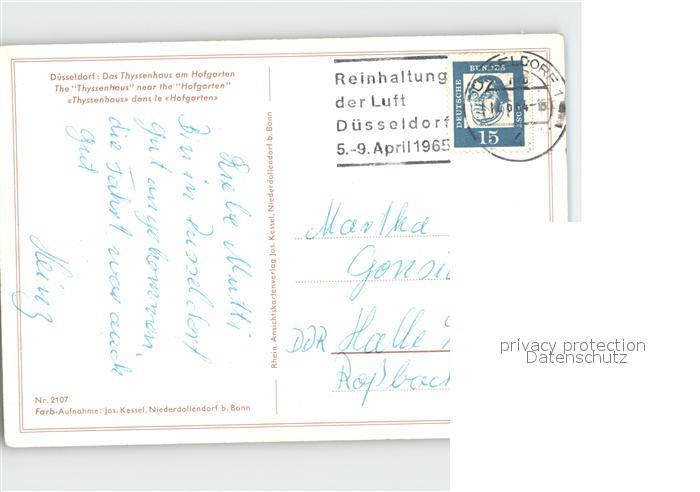 Düsseldorf: Das Thyssenhaus am Hofgarten
The "Thyssenhaus" near the "Hofgarten"
«Thyssenhaus» dans le «Hofgarten»
Liebe Mutti
Bin in Düsseldorf
gut angekommen,
die Fahrt war auch
gut
Heinz
Nr. 2107
Farb-Aufnahme: Jos. Kessel, Niederdollendorf b. Bonn
Rhein. Ansichtskartenverlag Jos. Kessel, Niederdollendorf b. Bonn
Reinhaltung
der Luft
Düsseldorf
5.-9. April 1965
DEUTSCHE BUNDES
15
Martha
DDR Halle
Roßbac
privacy protection
Datenschutz